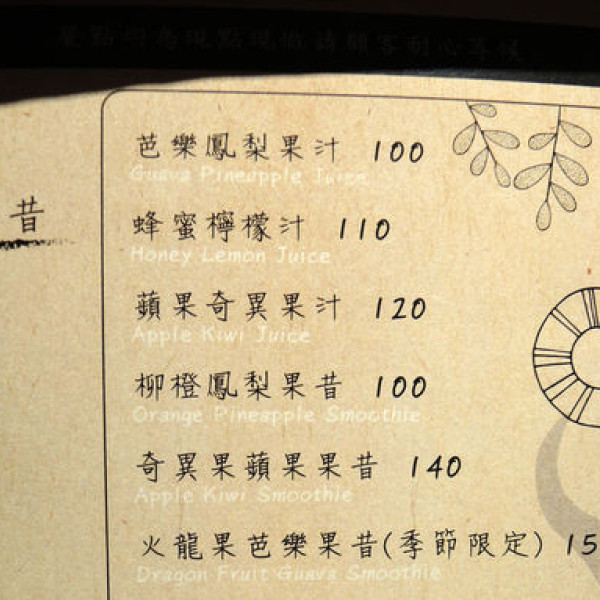 芭樂鳳梨果汁 100
Guava Pineapple Juice
蜂蜜檸檬汁 110
Honey Lemon Juice
蘋果奇異果汁 120
Apple Kiwi Juice
昔
柳橙鳳梨果昔 100
Orange Pineapple Smoothie
奇異果蘋果果昔 140
Apple Kiwi Smoothie
火龍果芭樂果昔(季節限定) 15
Dragon Fruit Guava Smoothie